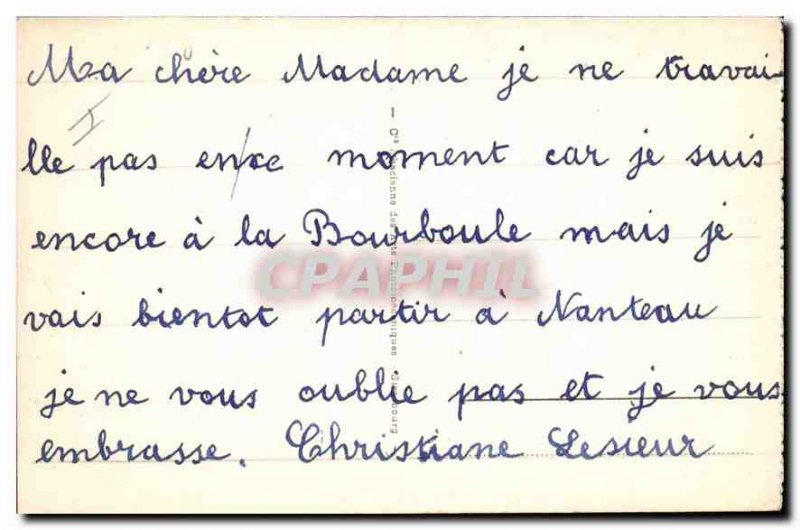 Ma chère Madame je ne travai
lle pas en/ce moment car je suis
encore à la Bourboule mais je
vais bientot partir à Nanteau
je ne vous oublie pas et je vous
embrasse. Christiane Lesieur
CPAPHIL